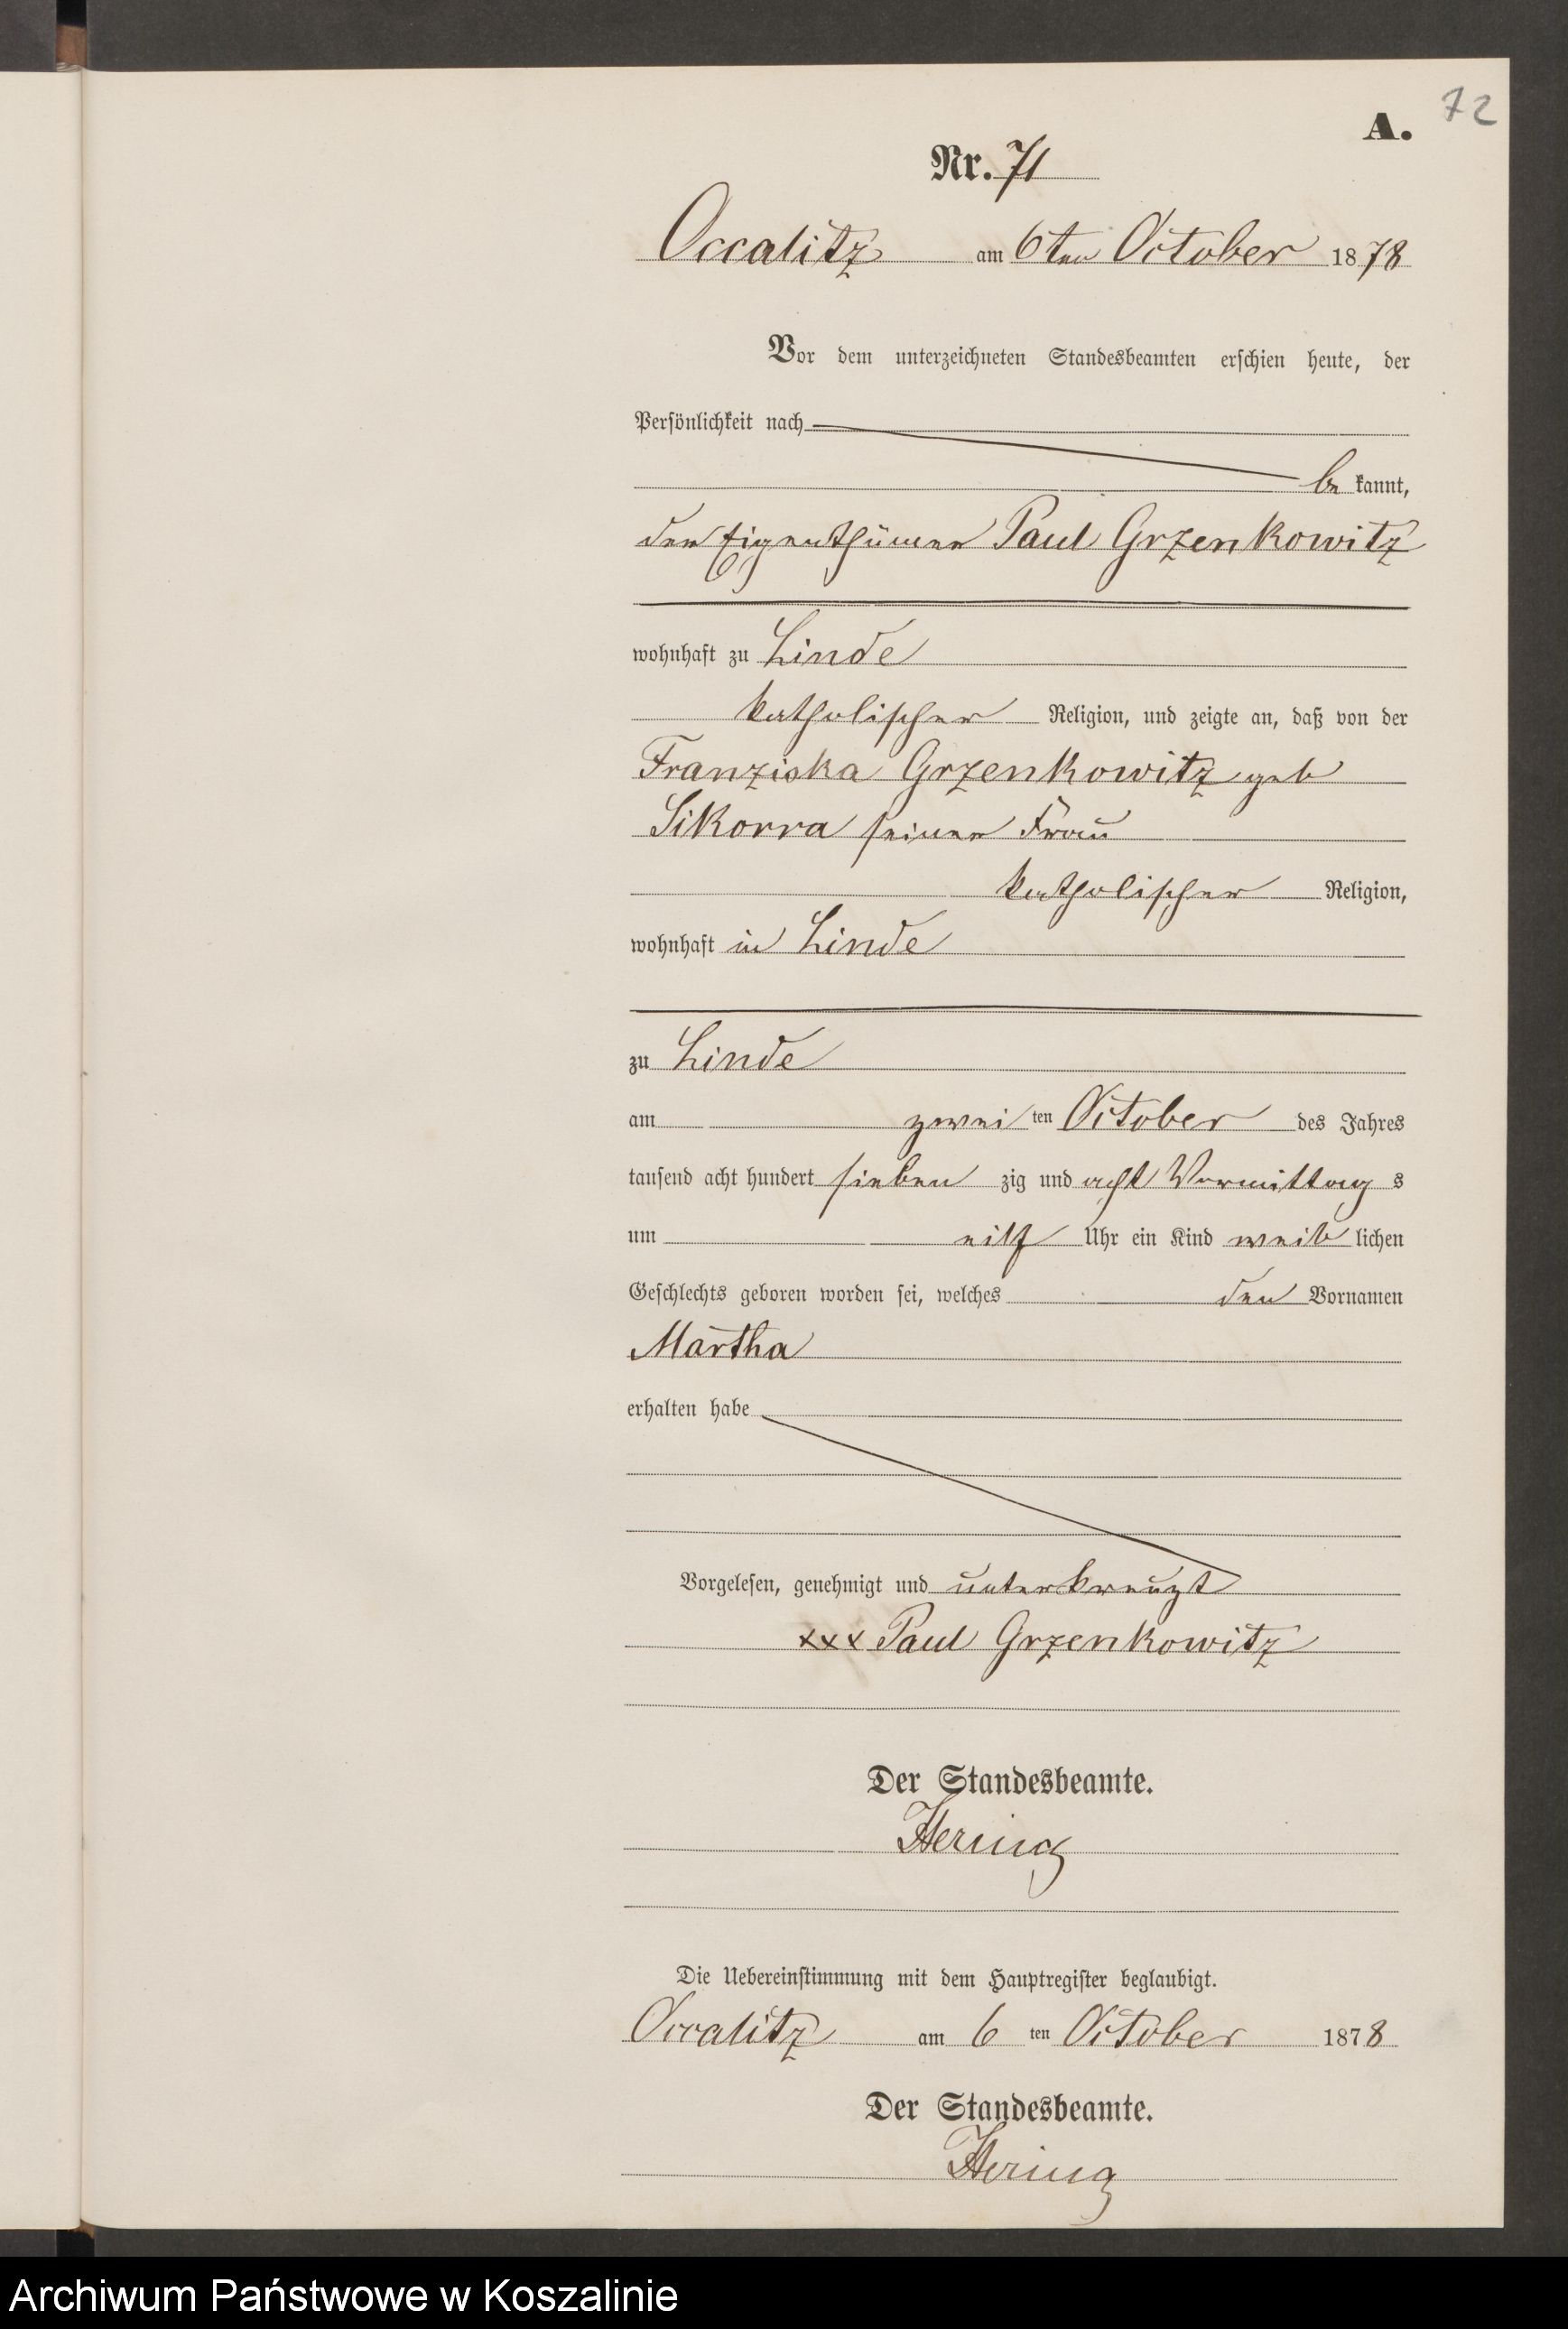 72
A.
Nr. 71
Occalitz am 6ten October 1878
Vor dem unterzeichneten Standesbeamten erschien heute, der
Persönlichkeit nach
be kannt,
der Eigenthümer Paul Grzenkowitz
wohnhaft zu Linde
katholischer Religion, und zeigte an, daß von der
Franziska Grzenkowitz geb
Sikorra seiner Frau
katholischer Religion,
wohnhaft in Linde
zu Linde
am zwei ten October des Jahres
tausend acht hundert sieben zig und acht Vormittag s
um eilf Uhr ein Kind weib lichen
Geschlechts geboren worden sei, welches den Vornamen
Martha
erhalten habe
Vorgelesen, genehmigt und unterkreuzt
xxx Paul Grzenkowitz
Der Standesbeamte.
Hering
Die Uebereinstimmung mit dem Hauptregister beglaubigt.
Occalitz am 6 ten October 1878
Der Standesbeamte.
Hering
Archiwum Państwowe w Koszalinie